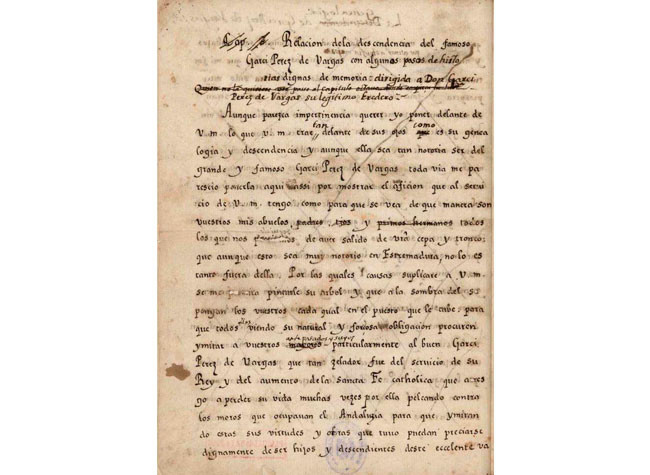 Relacion dela descendencia del famoso
Garci Perez de Vargas con algunos pasos de histo
rias dignas de memoria: dirigida a Don Garci
Perez de Vargas su legitimo Eredero.
Aunque parezca impertinencia querer yo poner delante de
V.m. lo que V.m. trae tan delante de sus ojos como es su genea
logia y descendencia y aunque ella sea tan notoria ser del
grande y famoso Garci Perez de Vargas toda via me pa
rescio ponerla aqui assi por mostrar el aficion que al servi
cio de V.m. tengo como para que se vea de que manera son
vuestros mis abuelos padres, tios y primos hermanos todos
los que nos de aver salido de vra cepa y tronco;
que aunque esto sea muy notorio en Estremadura, no lo es
tanto fuera della. Por las quales causas suplicare a V.m.
se me pintarle su arbol y que a la sombra del se
pongan los vuestros cada qual en el puesto que le cabe, para
que todos viendo su natural y forçosa obligacion procuren
ymitar a vuestros antepasados y suyos mayores particularmente al buen Garci
Perez de Vargas que tan zelador fue del servicio de su
Rey y del aumento dela sancta Fe catholica que a ries
go a perder su vida muchas vezes por ella peleando contra
los moros que ocupavan el Andaluzia para que ymitan
do estas sus virtudes y obras que tuvo puedan preciarse
dignamente de ser hijos y descendientes deste excelente va